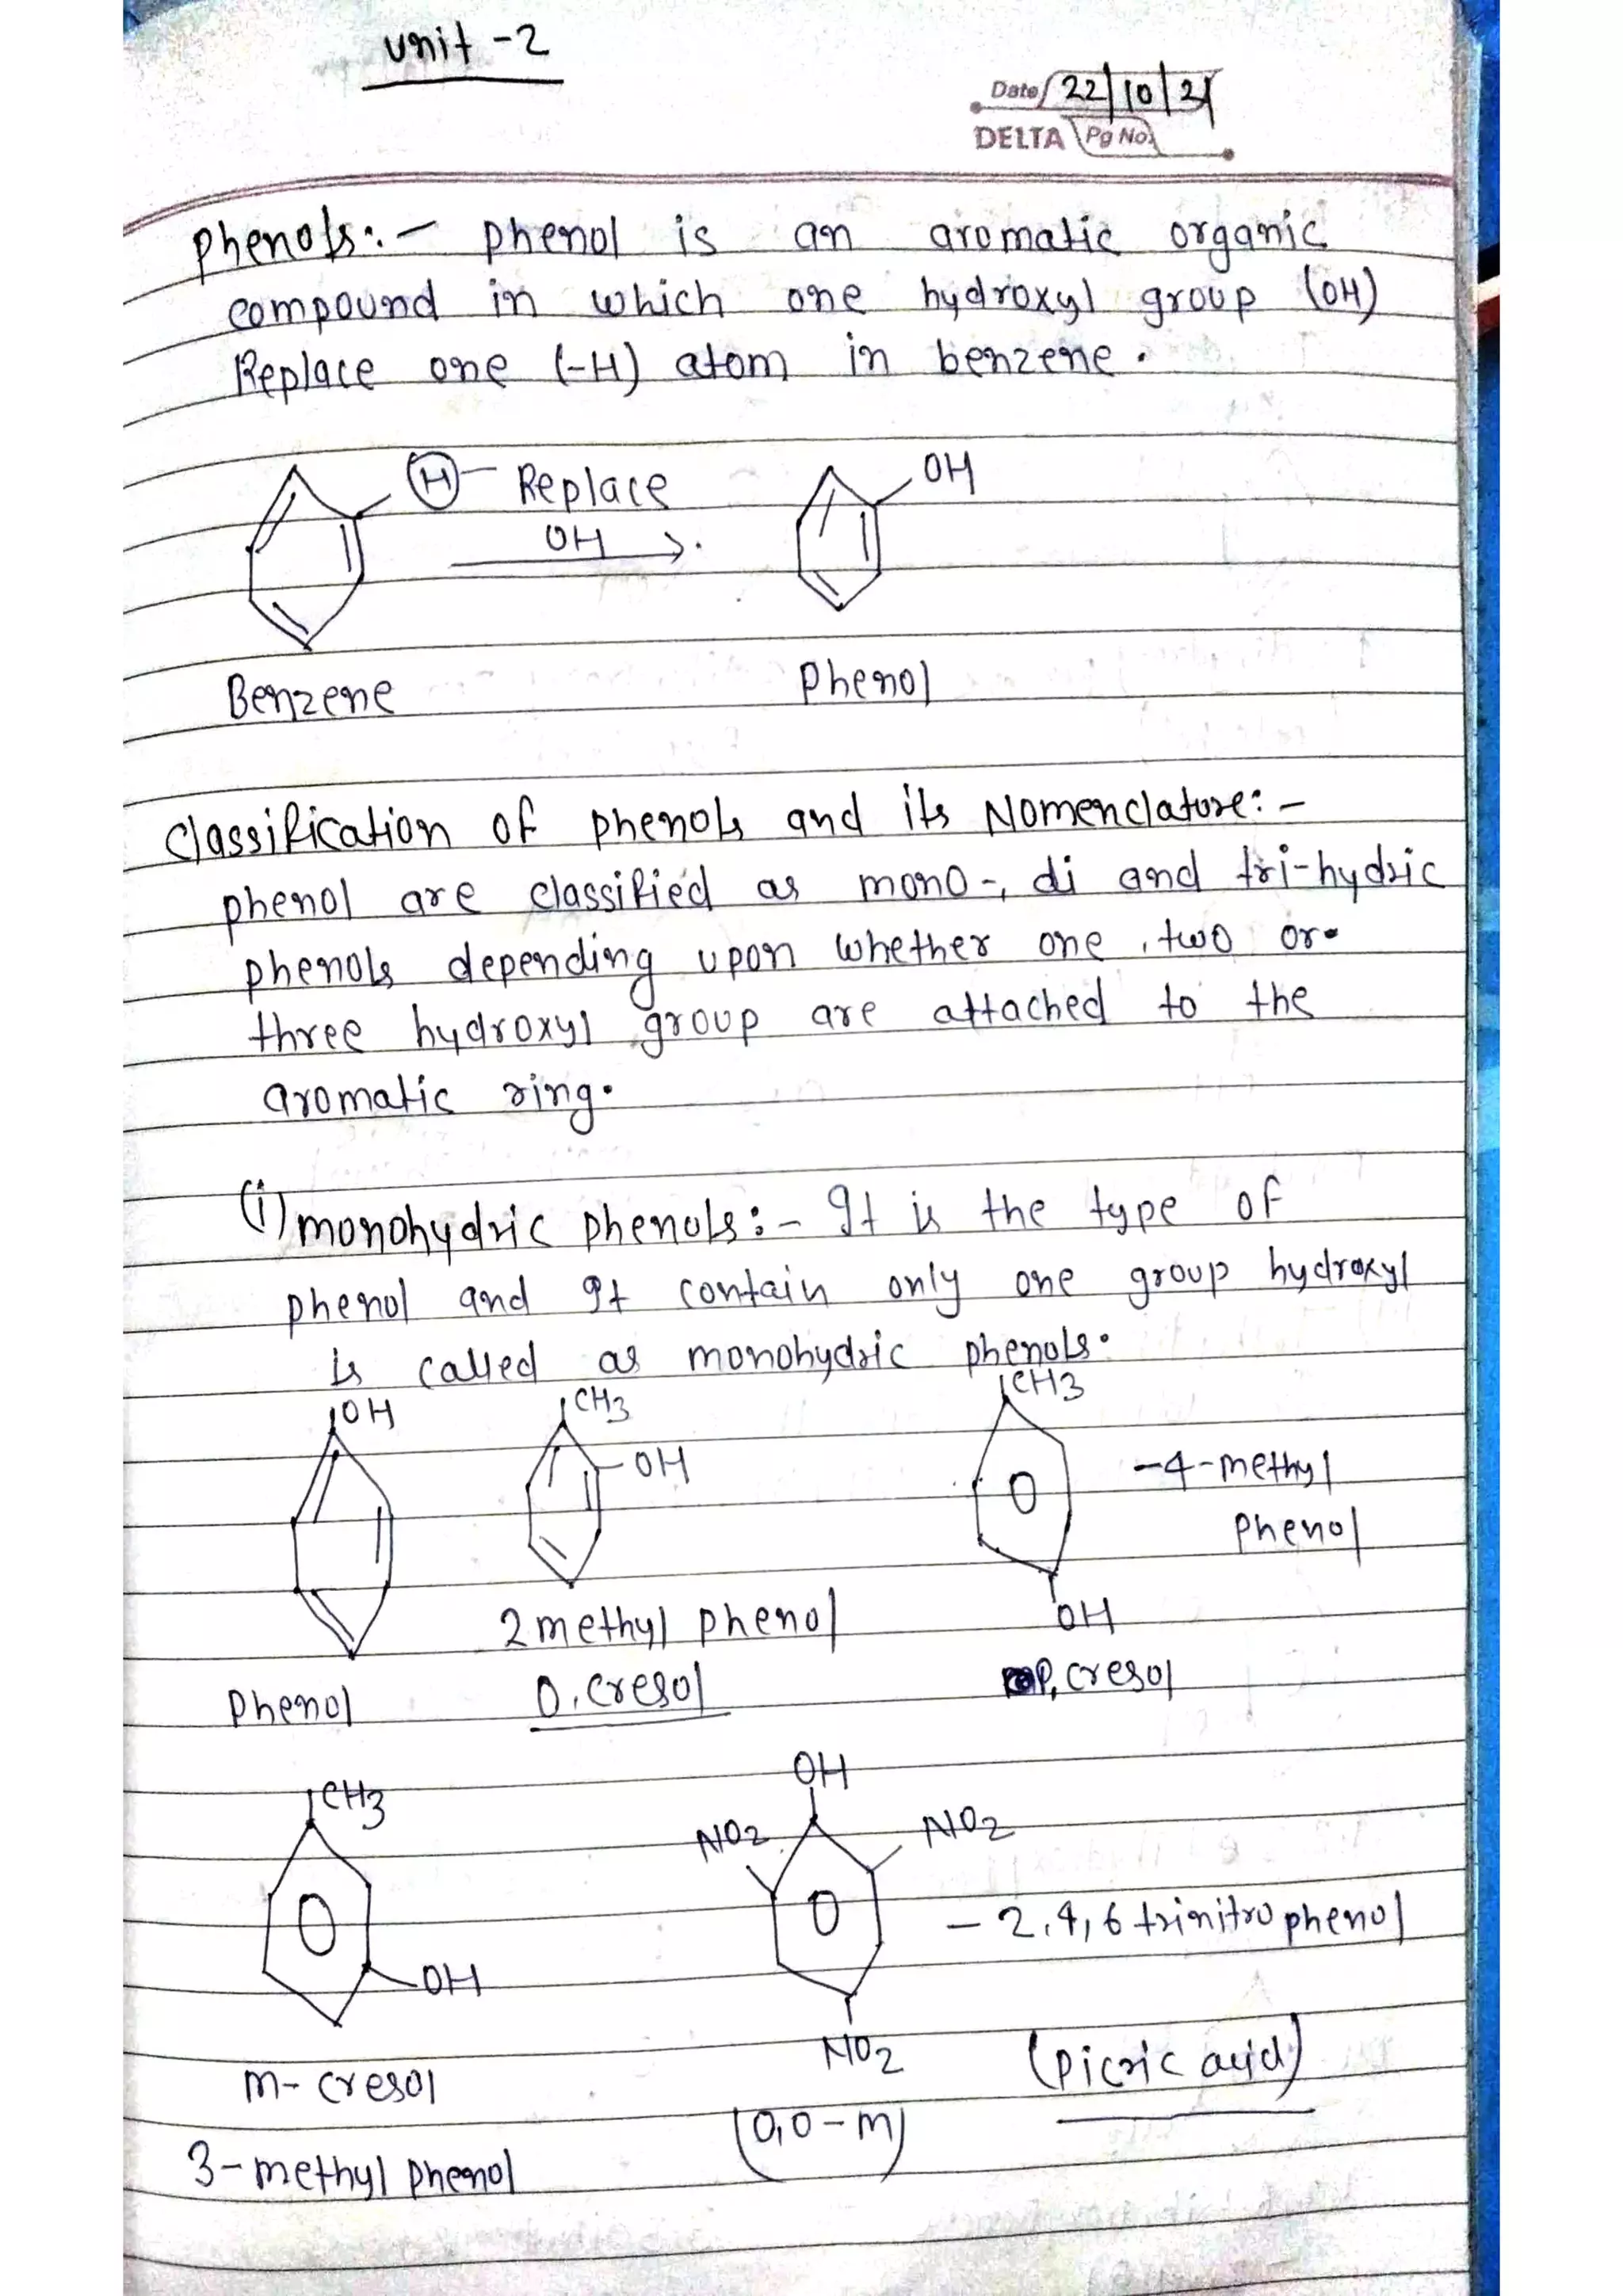 Unit -2
Date 22/10/21
DELTA Pg No.
Phenols:- Phenol is an aromatic organic
compound in which one hydroxyl group (OH)
Replace one (-H) atom in benzene.
H Replace OH
OH
Benzene Phenol
Classification of phenols and its Nomenclature:-
phenol are classified as mono-, di and tri-hydric
phenols depending upon whether one, two or
three hydroxyl group are attached to the
aromatic ring.
(i) monohydric phenols:- It is the type of
phenol and It contain only one group hydroxyl
is called as monohydric phenols.
OH CH3 CH3
OH -4-methyl
phenol
2 methyl phenol OH
Phenol O.cresol P.cresol
OH
CH3 NO2 NO2
- 2,4,6 trinitro phenol
OH
NO2 (Picric acid)
m-cresol (O,O-m)
3-methyl phenol